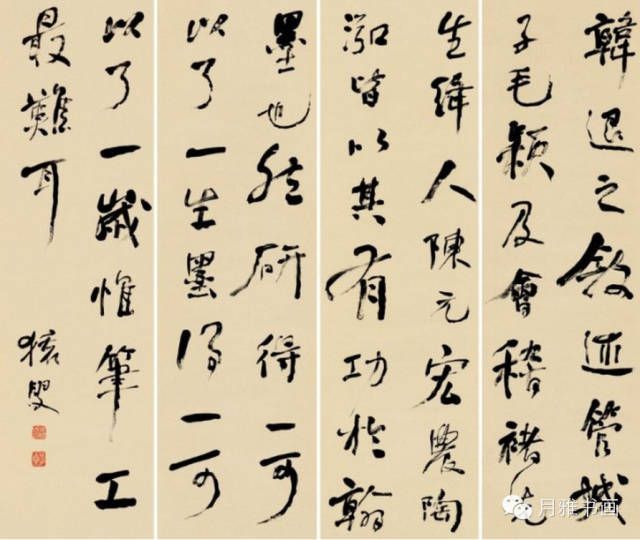 韓退之敘述管城
子毛穎及會稽褚先
生絳人陳元宏農陶
泓皆以其有功於翰
墨也然研得一可
以了一生墨得一可
以了一歲惟筆工
最難耳
猿叟
月雅书画